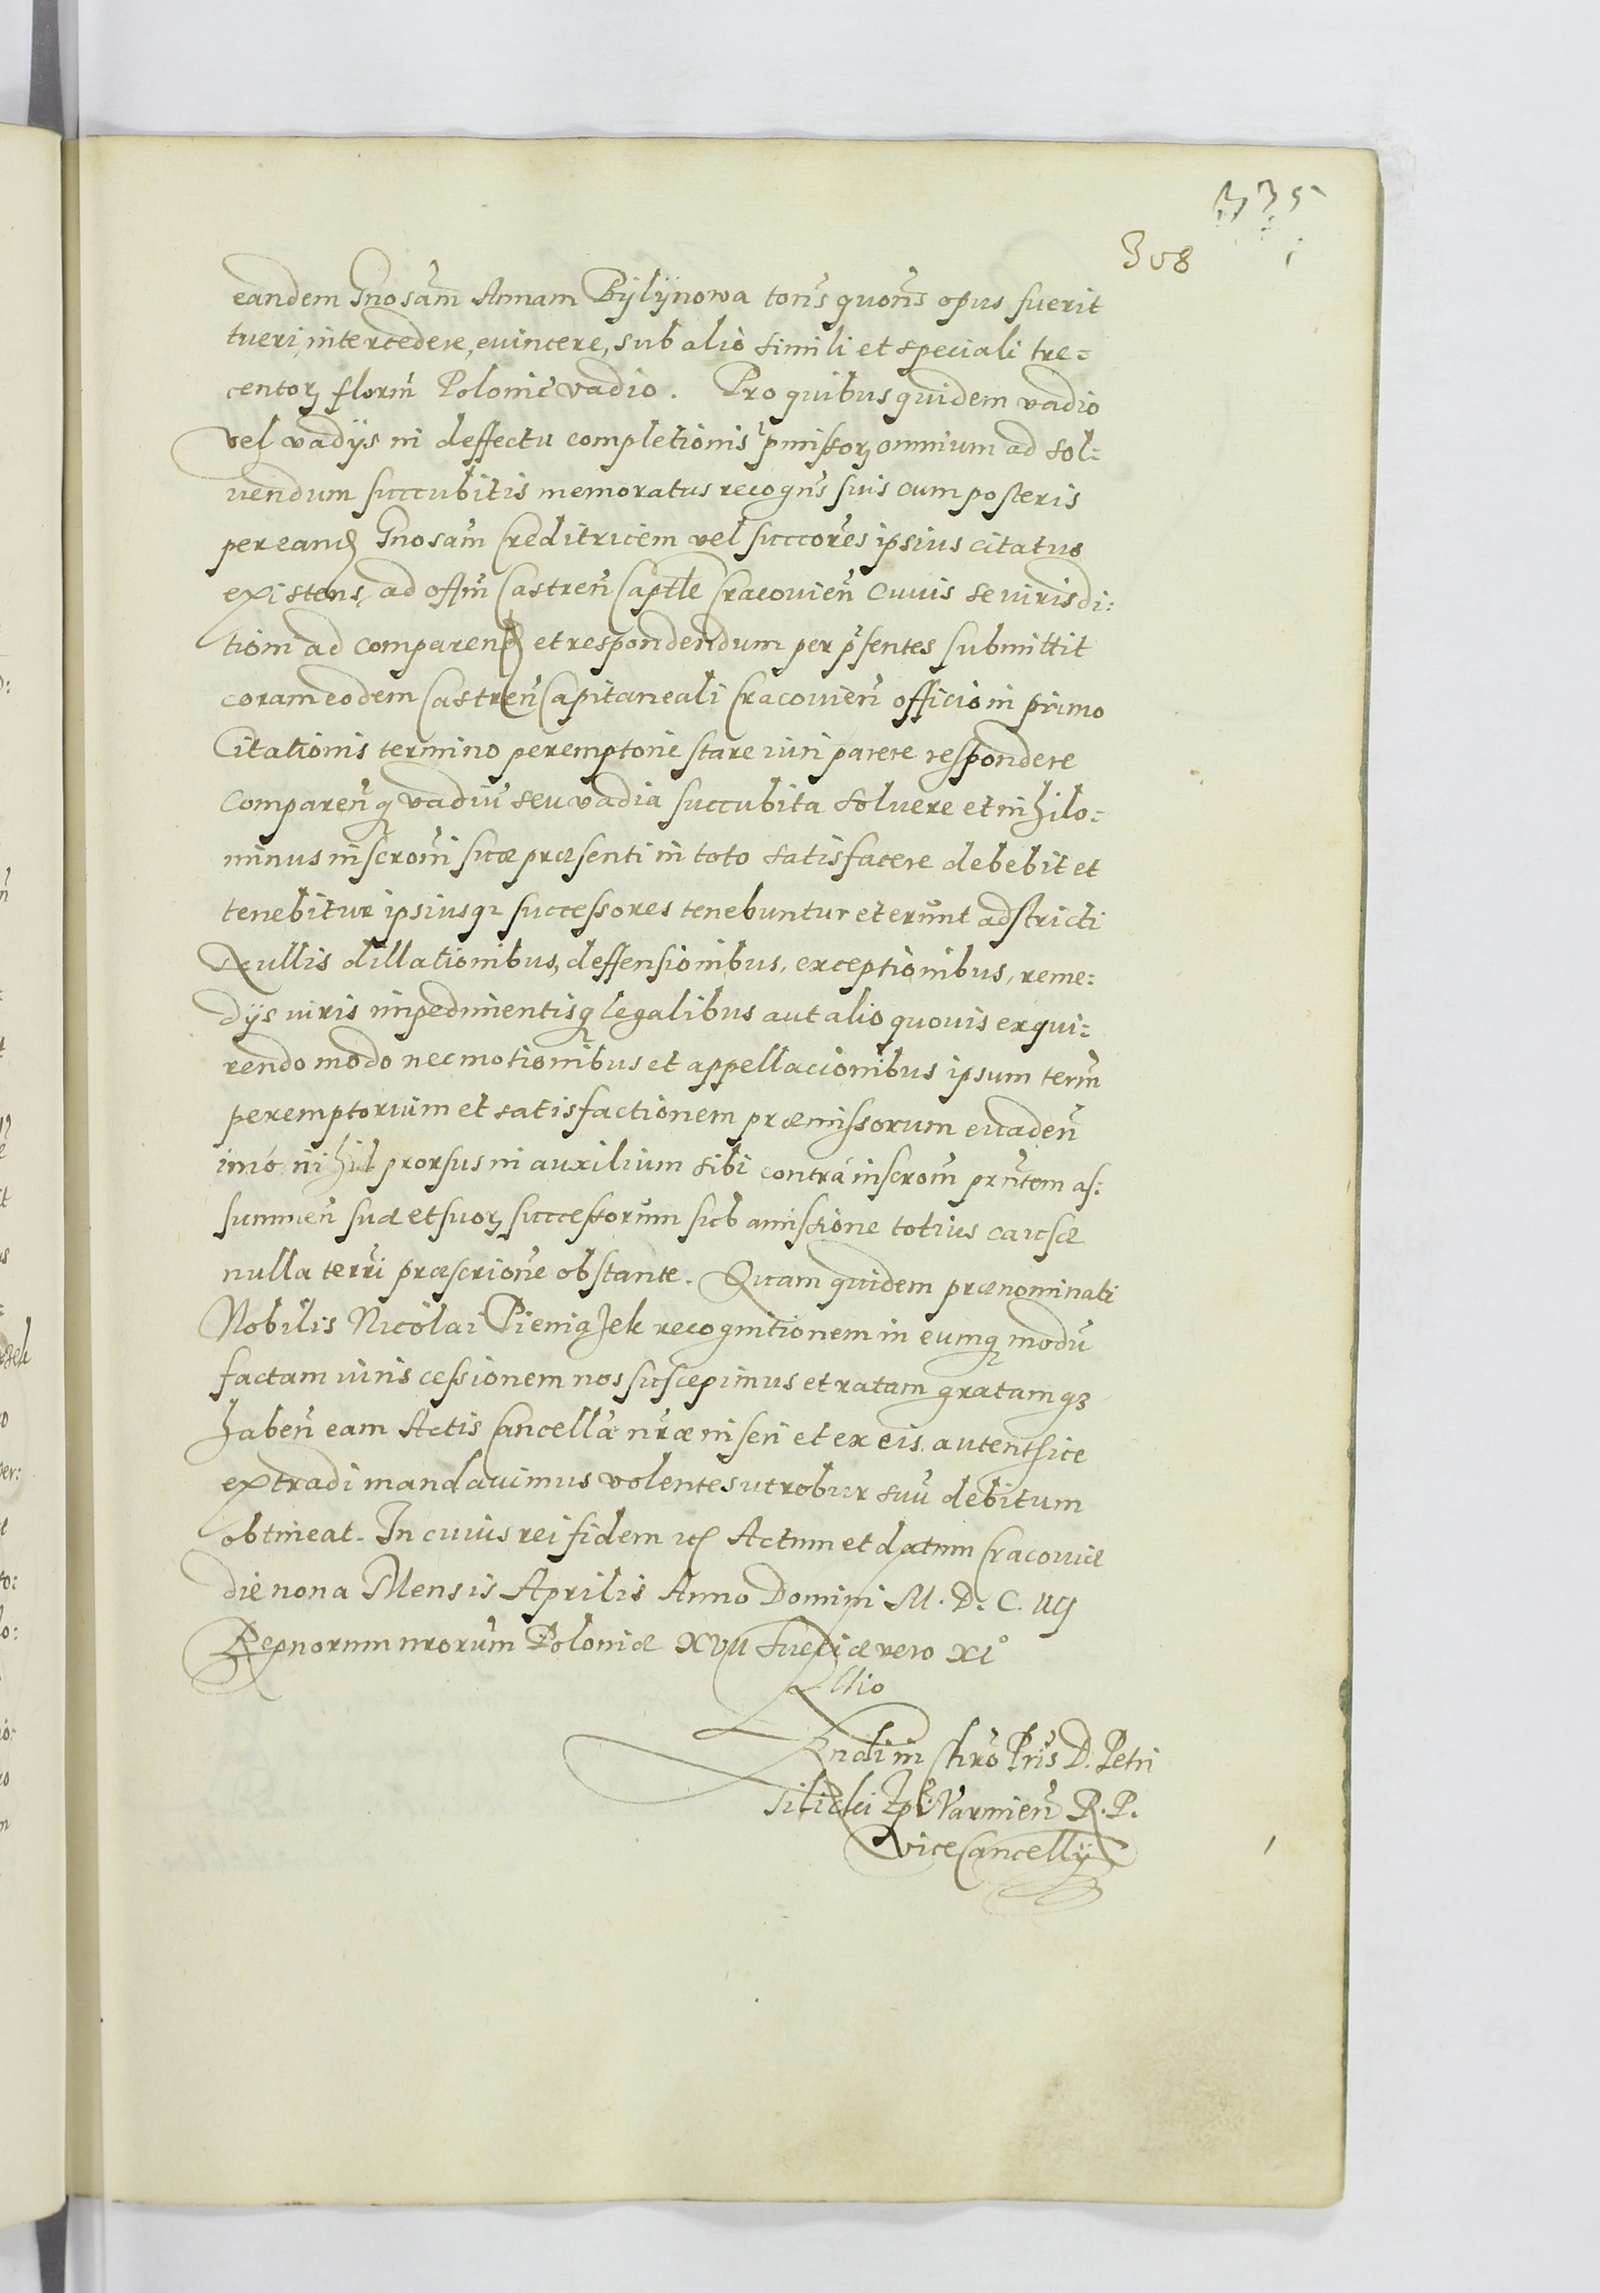 335
308
eandem Gnosam Annam Bÿlÿnowa tons quons opus fuerit
tueri, intercedere, euincere, sub alio simili et speciali tre-
centorz florn̄ Polonic̄ vadio. Pro quibus quidem vadio
vel vadÿs in deffectu completionis pmissorz omnium ad sol:
uendum succubitis memoratus recogn̄s suis cum posteris
per eand Gnosam Creditricem vel succores ipsius citatus
existens, ad offm̄ Castren̄ Captle Cracouien̄ cuuis se iurisdi:
tiom̄ ad comparend et respondendum per pn̄sentes submittit
coram eodem Castren̄ Capitaneali Cracouien̄ officio in primo
Citationis termino peremptorie stare iuri parere respondere
comparen̄q vadiū seu vadia succubita soluere et nihilo:
minus inscrom̄i suæ præsenti in toto satisfacere debebit et
tenebitur ipsiusqz successores tenebuntur et erunt adstricti
Nullis dillationibus, deffensionibus, exceptionibus, reme:
dÿs iuris impedimentisqz legalibus aut alio quouis exqui:
rendo modo nec motionibus et appellacionibus ipsum term̄
peremptorium et satisfactionem præmissorum euaden̄
imó nihil prorsus in auxilium sibi contrá inscrom̄ prn̄tem as:
sumen̄ suæ et suorz successorum sub amissione totius causæ
nulla terr̄i præscrione obstante. Quam quidem prænominati
Nobilis Nicolai Pieniążek recognitionem in eumqz modū
factam iuris cessionem nos suscepimus et ratam gratamqz
haben̄ eam Actis Cancellæ nr̄æ inseri et ex eis autenthice
extradi mandauimus volentes ut robur suū debitum
obtineat. In cuius rei fidem etc Actum et datum Cracouiæ
die nona Mensis Aprilis Anno Domini M. D. C. IIIJ
Regnorum nrorum Poloniæ XVII Sueciæ vero XI°
Rndi in Chro Pris D. Petri
Tilicki Epi Varmien̄ R. P.
ViceCancellÿ